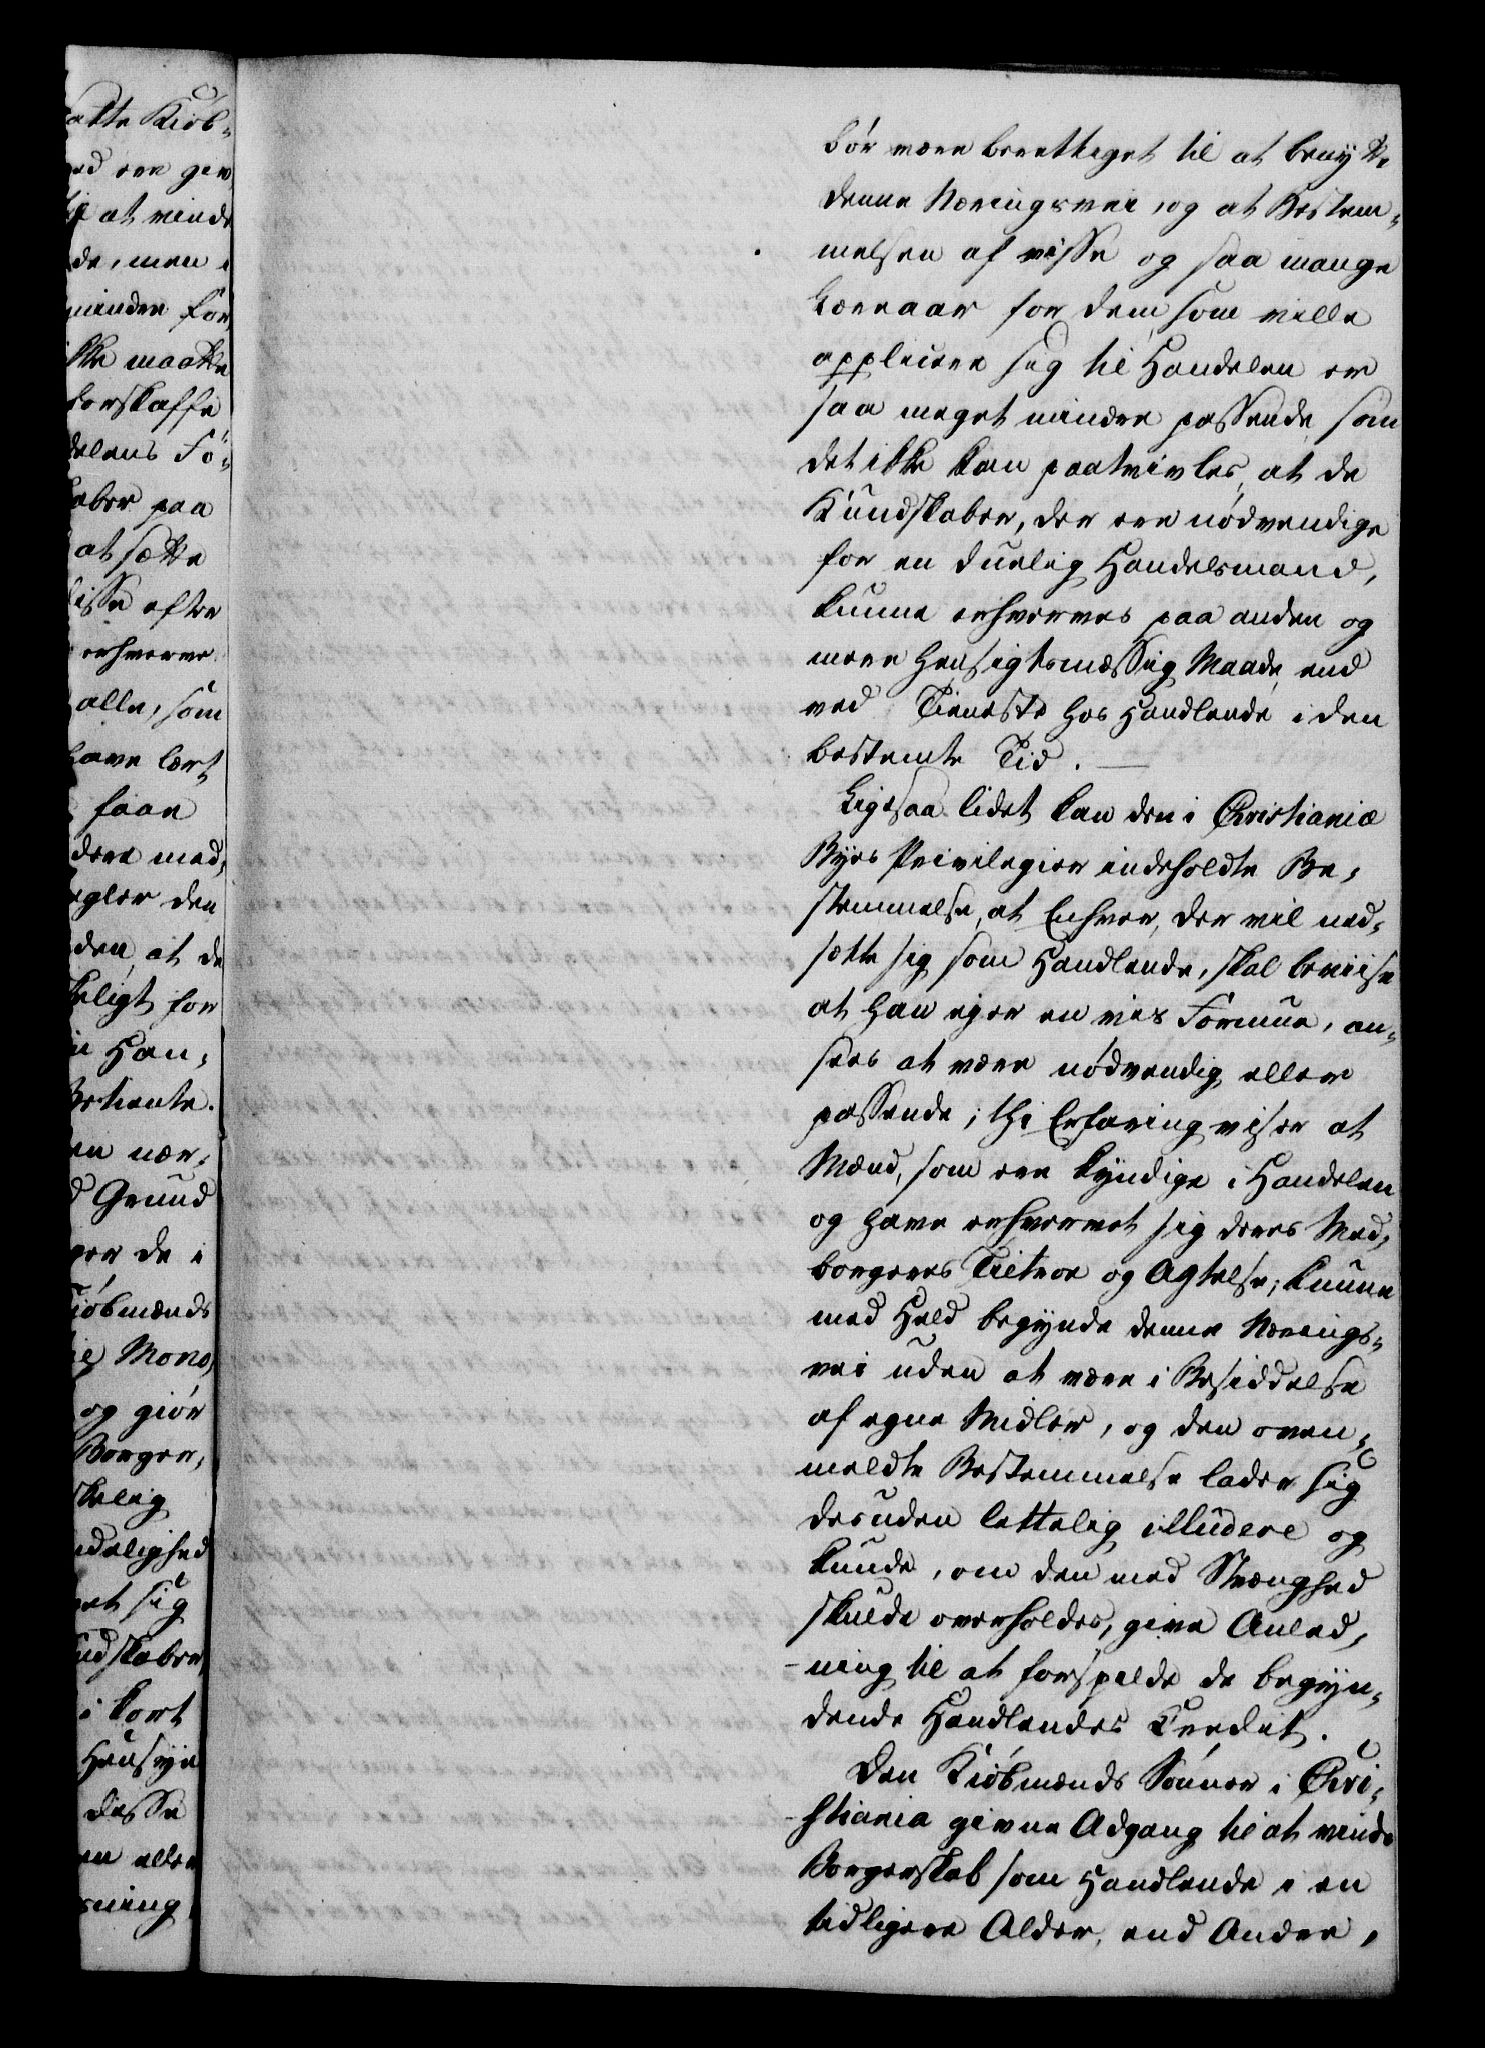 atte Kiøb-
ed ere giv
til at vinde
de, men i
mindre for
ikke maatte
forskaffe
delens Fø-
aber paa
at sætte
disse efter
erhverve
alle, som
have lært
faae
dere med,
egler den
den, at de
keligt for
in Han,
Betiente.
en nær,
d Grund
per de i
Kiøbmænds
e, Mono,
og giør
Borger,
skelig
idelighed
et sig
ndskaber,
i kort
Hensyn
disse
en eller
sning
bør være berettiget til at benytte
denne Næringsvei, og at Bestem-
melsen af visse og saa mange
Læreaar for dem, som ville
applicere sig til Handelen er
saa meget mindre passende, som
det ikke kan paatvivles, at de
Kundskaber, der ere nødvendige
for en duelig Handelsmand,
kunne erhverves paa anden og
mere hensigtsmæssig Maade, end
ved Tieneste hos Handlende i den
bestemte Tid. —
Ligesaa lidet kan den i Christiania
Byes Privilegier indeholdte Be,
stemmelse, at Enhver, der vil ned,
sætte sig som Handlende, skal beviise
at han ejer en vis Formue, an-
sees at være nødvendig eller
passende; thi Erfaring viser at
Mænd, som ere kyndige i Handelen
og have erhvervet sig deres Med,
borgeres Tiltroe og Agtelse, kunne
med Held begynde denne Nærings-
vei uden at være i Besiddelse
af egne Midler, og den oven-
meldte Bestemmelse lader sig
desuden lettelig illudere og
kunde, om den med Strænghed
skulde overholdes, give Anled,
-ning til at forspilde de begyn-
dende Handlendes Credit.
Den Kiøbmænds Sønner i Chri-
-stiania givne Adgang til at vinde
Borgerskab som Handlende i en
tidligere Alder, end Andre,